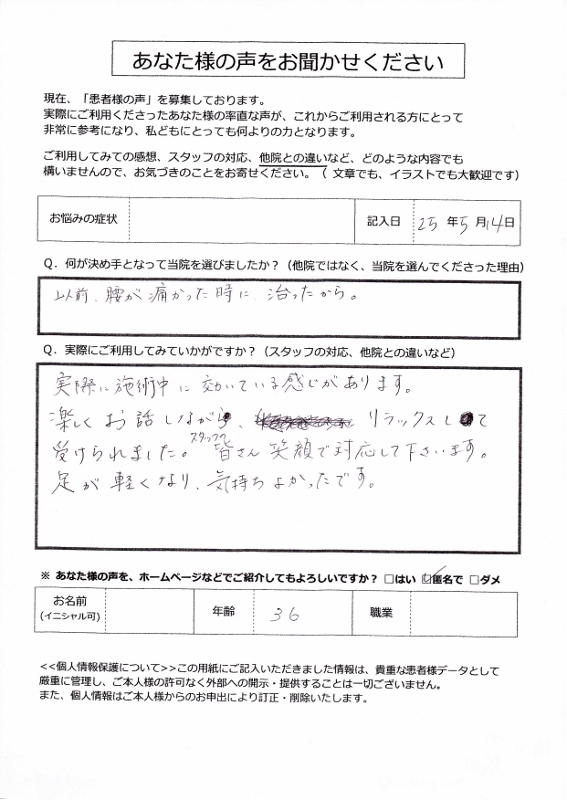 あなた様の声をお聞かせください
現在、「患者様の声」を募集しております。
実際にご利用くださったあなた様の率直な声が、これからご利用される方にとって
非常に参考になり、私どもにとっても何よりの力となります。
ご利用してみての感想、スタッフの対応、他院との違いなど、どのような内容でも
構いませんので、お気づきのことをお寄せください。（ 文章でも、イラストでも大歓迎です）
お悩みの症状 記入日 25 年 5 月 14 日
Q．何が決め手となって当院を選びましたか？（他院ではなく、当院を選んでくださった理由）
以前、腰が痛かった時に、治ったから。
Q．実際にご利用してみていかがですか？（スタッフの対応、他院との違いなど）
実際に施術中に効いている感じがあります。
楽しくお話しながら、リラックスして
受けられました。スタッフの皆さん笑顔で対応して下さいます。
足が軽くなり、気持ちよかったです。
※ あなた様の声を、ホームページなどでご紹介してもよろしいですか？ □はい ☑匿名で □ダメ
お名前 年齢 36 職業
(イニシャル可)
<<個人情報保護について>>この用紙にご記入いただきました情報は、貴重な患者様データとして
厳重に管理し、ご本人様の許可なく外部への開示・提供することは一切ございません。
また、個人情報はご本人様からのお申出により訂正・削除いたします。